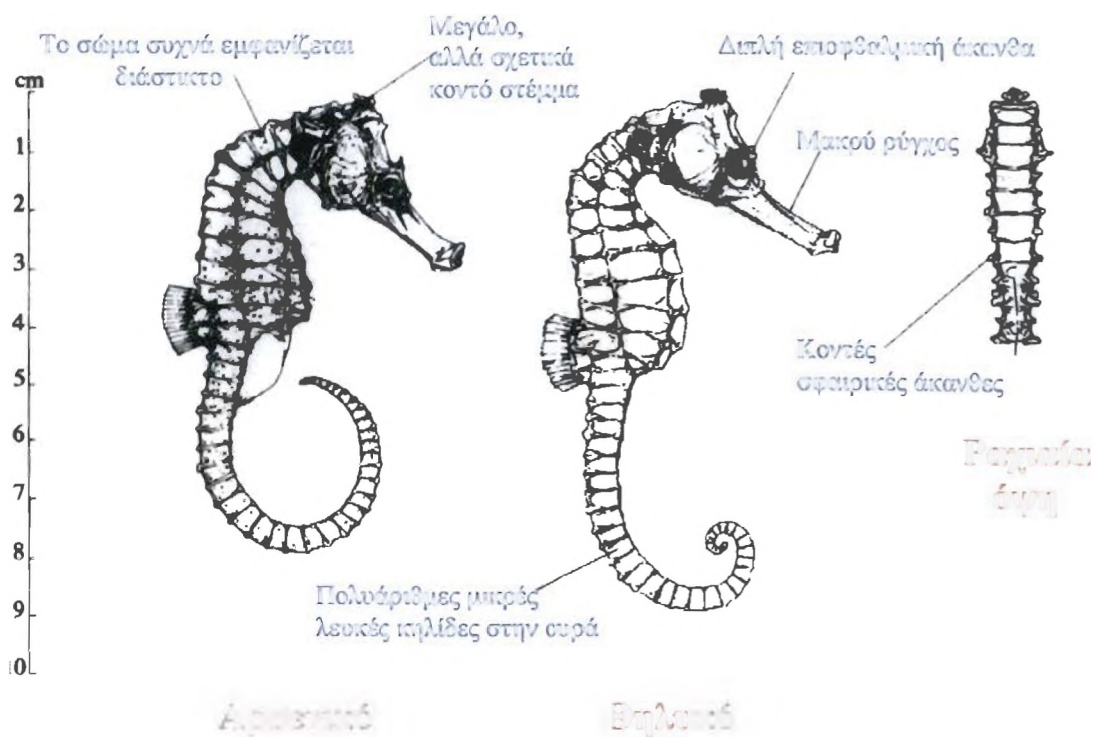 Το σώμα συχνά εμφανίζεται
διάστικτο
Μεγάλο,
αλλά σχετικά
κοντό στέμμα
Διπλή επιοφθαλμική άκανθα
cm
1
2
3
4
5
6
7
8
9
10
Μακρύ ρύγχος
Κοντές
σφαιρικές άκανθες
Ραχιαία
όψη
Πολυάριθμες μικρές
λευκές κηλίδες στην ουρά
Αρσενικό
Θηλυκό